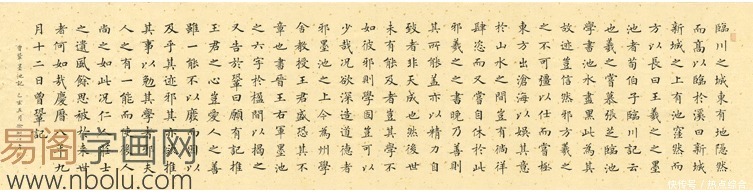 臨川之城東有地隱然
而高以臨於溪曰新城
新城之上有池窪然而
方以長曰王羲之之墨
池者荀伯子臨川記云
也羲之嘗慕張芝臨池
學書池水盡黑此為其
故迹豈信然邪方羲之
之不可彊以仕而嘗極
東方出滄海以娛其意
於山水之間豈有徜徉
肆恣而又嘗自休於此
邪羲之之書晚乃善則
其所能蓋亦以精力自
致者非天成也然後世
未有能及者豈其學不
如彼邪則學固豈可以
少哉况欲深造道德者
邪墨池之上今為州學
舍教授王君盛恐其不
章也書晉王右軍墨池
之六字於楹間以揭之
又告於鞏曰願有記推
王君之心豈愛人之善
雖一能不以廢而因以
及乎其迹邪其亦欲推
其事以勉其學者邪夫
人之有一能而使後人
尚之如此况仁人莊士
之遺風餘思被於來世
者何如哉慶曆八年九
月十二日曾鞏記
曾鞏墨池記 乙亥五月
易阁字画网
www.nbolu.com
快传号